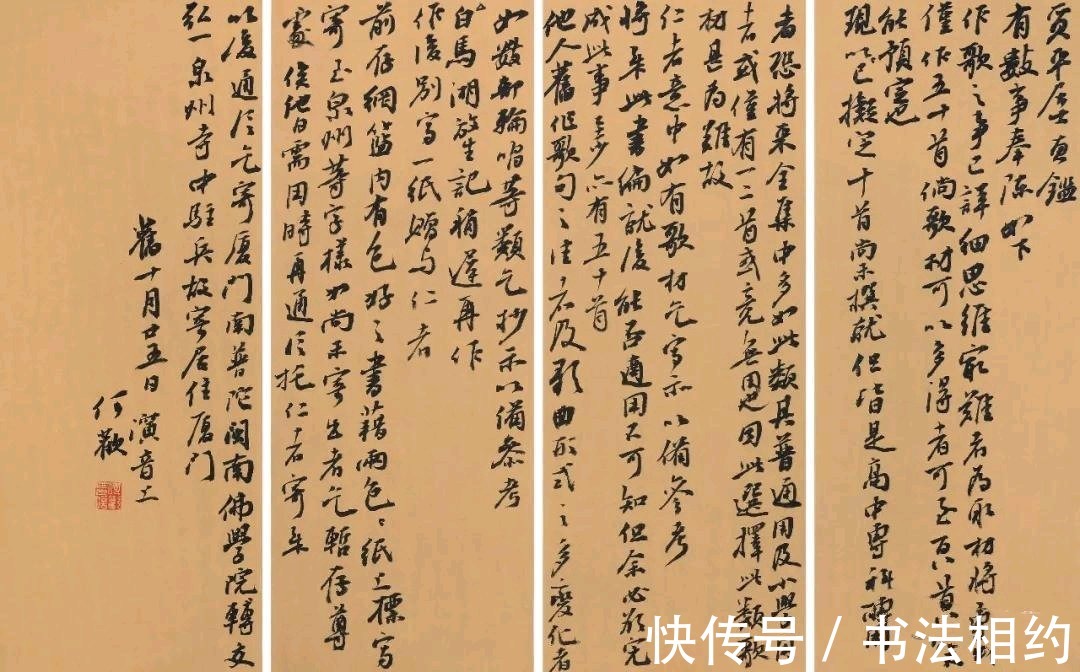 質平居士慧鑑
有數事奉陳如下
作歌之事已詳細思維最難者為取材將來或
僅作五十首倘歌材可以多得者可至百首
能預定也
現以已擬定十首尚未撰就但皆是高中專科
者恐將來全集中多如此類其普通用及小學用
者或僅有一二首或竟無因此選擇此類歌
材甚為難故
仁者意中如有歌材乞寫示以備參考
將來此書編就後能否適用不可知但余必欲完
成此事至少亦有五十首
他人舊作歌句之佳者及歌曲形式之多變化者
如數部輪唱等類乞抄示以備參考
白馬湖放生記稍遲再作
作後別写一紙贈与仁者
前存網籃內有包好之書藉兩包紙上標寫
寄至泉州等字樣如尚未寄出者乞暫存尊
處俟他日需用時再通信托仁者寄來
以後通信乞寄厦門南普陀閩南佛學院轉交
弘一泉州寺中駐兵故寄居住厦門
舊十月廿五日演音上
何歡
快传号 / 书法相约